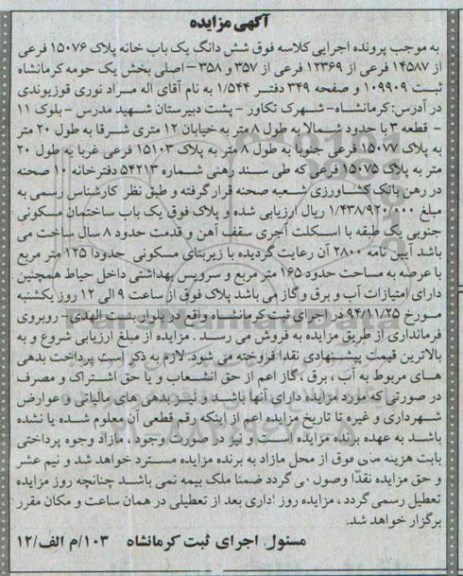 آگهی مزایده
به موجب پرونده اجرایی کلاسه فوق شش دانگ یک باب خانه پلاک ۱۵۰۷۶ فرعی
از ۱۴۵۸۷ فرعی از ۱۲۳۶۹ فرعی از ۳۵۷ و ۳۵۸ – اصلی بخش یک حومه کرمانشاه
ثبت ۱۰۹۹۰۹ و صفحه ۳۴۹ دفتر ۱/۵۴۴ به نام آقای اله مراد نوری قوزیوندی
در آدرس: کرمانشاه- شهرک تکاور – پشت دبیرستان شهید مدرس – بلوک ۱۱
- قطعه ۳ با حدود شمالا به طول ۸ متر به خیابان ۱۲ متری شرقا به طول ۲۰ متر
به پلاک ۱۵۰۷۷ فرعی جنوبا به طول ۸ متر به پلاک ۱۵۱۰۳ فرعی غربا به طول ۲۰
متر به پلاک ۱۵۰۷۵ فرعی که طی سند رهنی شماره ۵۴۲۱۳ دفترخانه ۱۰ صحنه
در رهن بانک کشاورزی شعبه صحنه قرار گرفته و طبق نظر کارشناس رسمی به
مبلغ ۱/۴۳۸/۹۲۰/۰۰۰ ریال ارزیابی شده و پلاک فوق یک باب ساختمان مسکونی
جنوبی یک طبقه با اسکلت آجری سقف آهن و قدمت حدود ۸ سال ساخت می
باشد آیین نامه ۲۸۰۰ آن رعایت گردیده با زیربنای مسکونی حدودا ۱۲۵ متر مربع
با عرصه به مساحت حدود ۱۶۵ متر مربع و سرویس بهداشتی داخل حیاط همچنین
دارای امتیازات آب و برق و گاز می باشد پلاک فوق از ساعت ۹ الی ۱۲ روز یکشنبه
مورخ ۹۴/۱۱/۲۵ در اجرای ثبت کرمانشاه واقع در بلوار بنت الهدی- روبروی
فرمانداری از طریق مزایده به فروش می رسد . مزایده از مبلغ ارزیابی شروع و به
بالاترین قیمت پیشنهادی نقدا فروخته می شود. لازم به ذکر است پرداخت بدهی
های مربوط به آب ، برق ، گاز اعم از حق انشعاب و یا حق اشتراک و مصرف
در صورتی که مورد مزایده دارای آنها باشد و نیز بدهی های مالیاتی و عوارض
شهرداری و غیره تا تاریخ مزایده اعم از اینکه رقم قطعی آن معلوم شده یا نشده
باشد به عهده برنده مزایده است و نیز در صورت وجود ، مازاد وجوه پرداختی
بابت هزینه های فوق از محل مازاد به برنده مزایده مسترد خواهد شد و نیم عشر
و حق مزایده نقدا وصول می گردد ضمنا ملک بیمه نمی باشد چنانچه روز مزایده
تعطیل رسمی گردد ، مزایده روز اداری بعد از تعطیلی در همان ساعت و مکان مقرر
برگزار خواهد شد.
مسئول اجرای ثبت کرمانشاه ۱۰۳/م الف/۱۲